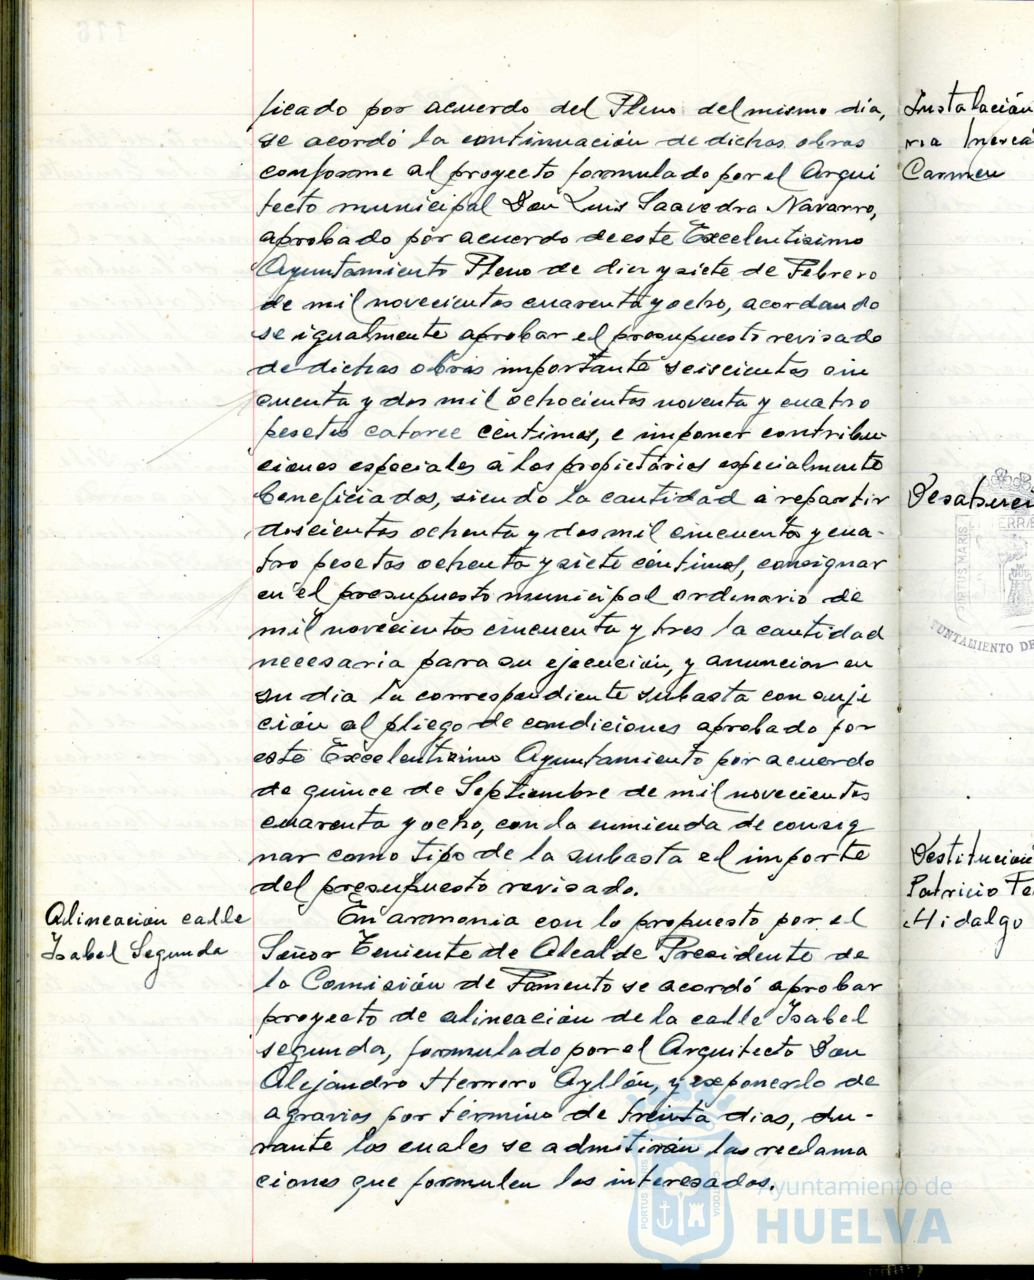 ficado por acuerdo del Pleno del mismo día,
se acordó la continuación de dichas obras
conforme al proyecto formulado por el Arqui
tecto municipal Don Luis Saavedra Navarro,
aprobado por acuerdo de este Excelentísimo
Ayuntamiento Pleno de diez y siete de Febrero
de mil novecientos cuarenta y ocho, acordando
se igualmente aprobar el presupuesto revisado
de dichas obras importante seiscientas cin
cuenta y dos mil ochocientas noventa y cuatro
pesetas catorce céntimos, e imponer contribu
ciones especiales a los propietarios especialmente
beneficiados, siendo la cantidad a repartir
doscientas ochenta y dos mil cincuenta y cua-
tro pesetas ochenta y siete céntimos, consignar
en el presupuesto municipal ordinario de
mil novecientos cincuenta y tres la cantidad
necesaria para su ejecución, y anunciar en
su día la correspondiente subasta con suje
ción al pliego de condiciones aprobado por
este Excelentísimo Ayuntamiento por acuerdo
de quince de Septiembre de mil novecientos
cuarenta y ocho, con la enmienda de consig
nar como tipo de la subasta el importe
del presupuesto revisado.
Alineación calle
Isabel Segunda
En armonia con lo propuesto por el
Señor Teniente de Alcalde Presidente de
la Comisión de Fomento se acordó aprobar
proyecto de alineación de la calle Isabel
segunda, formulado por el Arquitecto Don
Alejandro Herrero Ayllón, y exponerlo de
agravios por término de treinta dias, du-
rante los cuales se admitirán las reclama
ciones que formulen los interesados.
Instalación
Carmen
Destitución
Patricio
Hidalgo
116
Ayuntamiento de
HUELVA
PORTUS MARIS
CUSTODIA